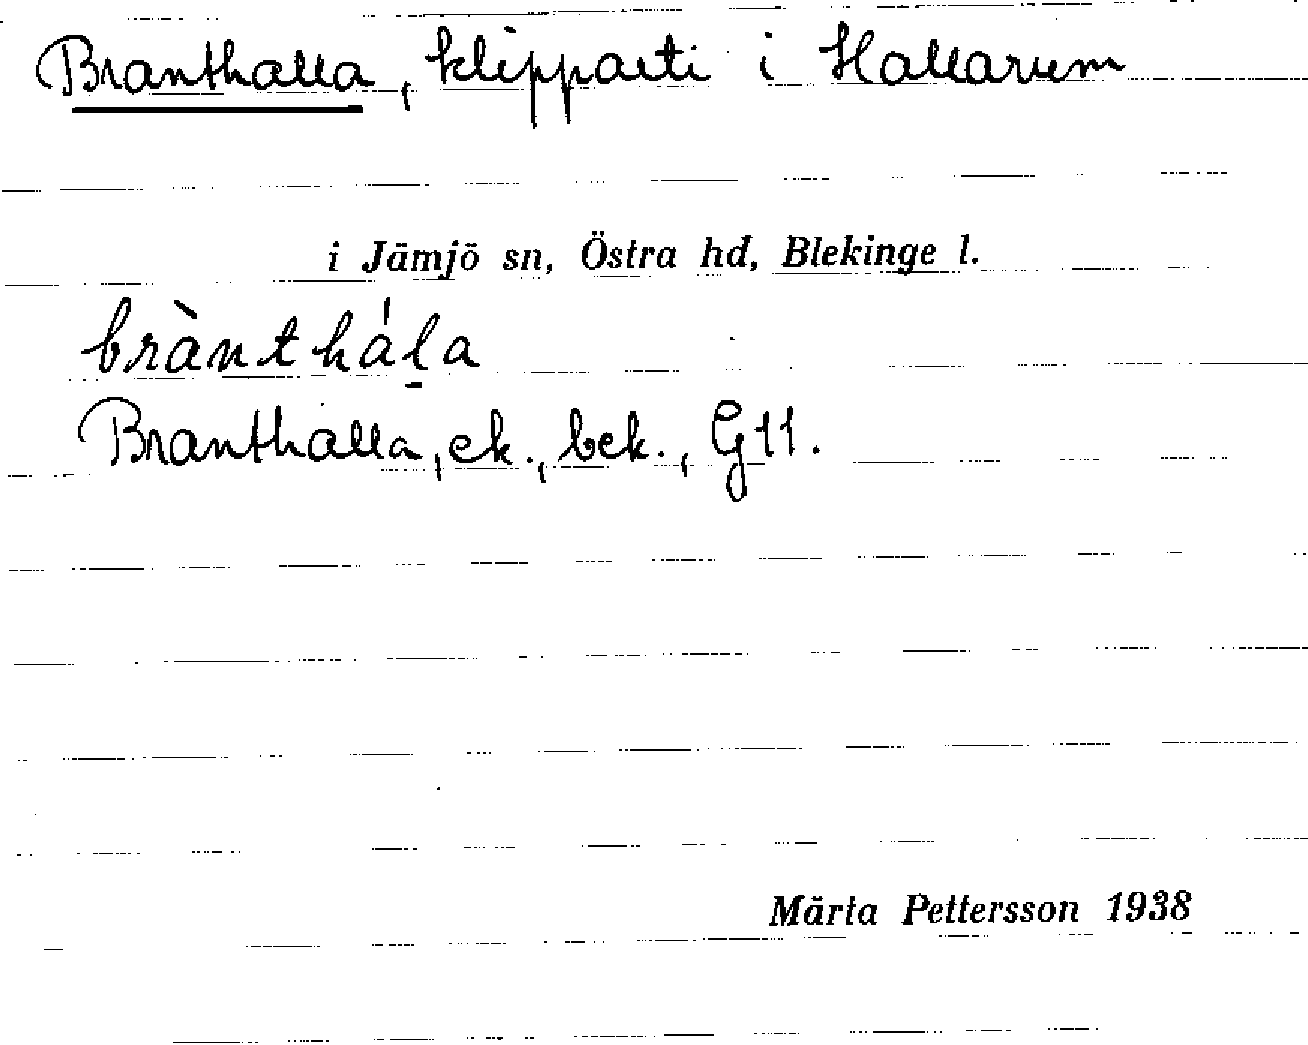 Branthalla, klipparti i Hallarum
i Jämjö sn, Östra hd, Blekinge l.
brànthál̠a
Branthalla, ek., bek., G11.
Märta Pettersson 1938